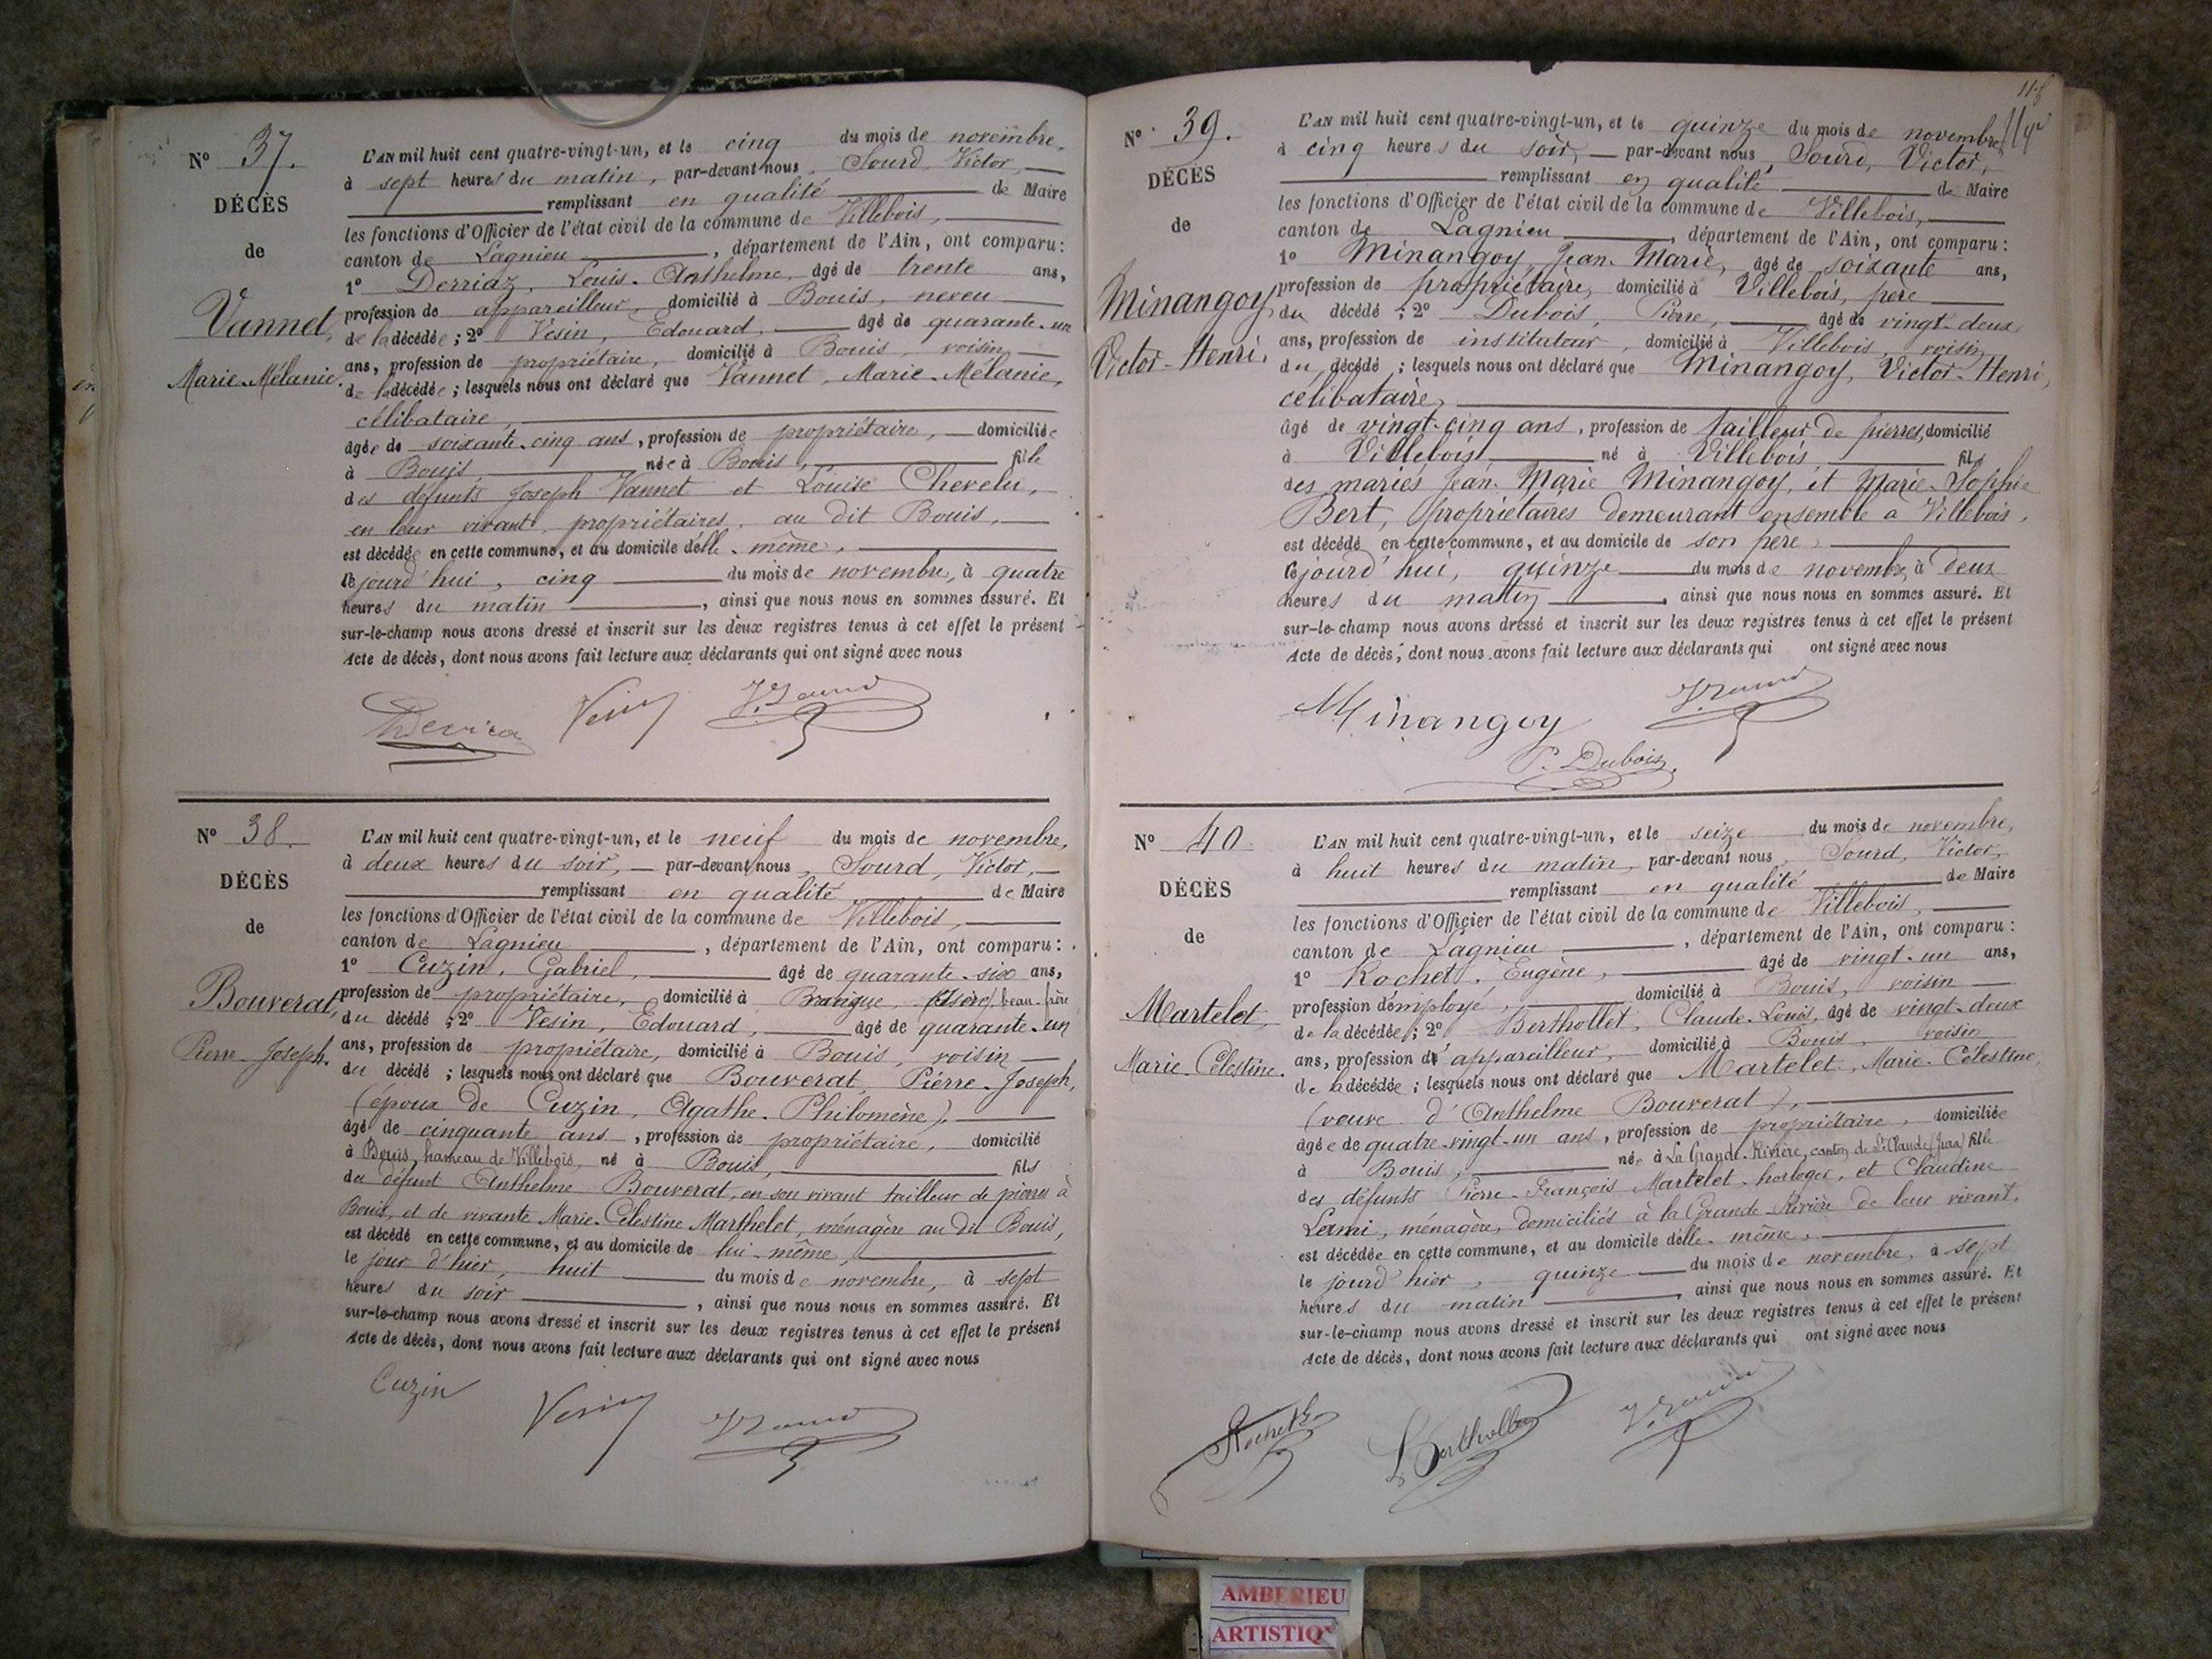 N° 37.
DÉCÈS
de
Vannet,
Marie-Mélanie.
L'AN mil huit cent quatre-vingt-un, et le cinq du mois de novembre,
à sept heures du matin, par-devant nous, Sourd, Victor,
remplissant en qualité de Maire
les fonctions d'Officier de l'état civil de la commune de Villebois,
canton de Lagnieu, département de l'Ain, ont comparu :
1° Derriaz, Louis-Anthelme, âgé de trente ans,
profession de appareilleur, domicilié à Bouis, neveu
de la décédée ; 2° Vesin, Edouard, âgé de quarante-un
ans, profession de propriétaire, domicilié à Bouis, voisin
de la décédée ; lesquels nous ont déclaré que Vannet, Marie-Mélanie,
célibataire,
âgée de soixante-cinq ans, profession de propriétaire, domiciliée
à Bouis, née à Bouis, fille
des défunts Joseph Vannet et Louise Chevelu,
en leur vivant, propriétaires, au dit Bouis,
est décédée en cette commune, et au domicile d'elle-même,
le jourd'hui, cinq du mois de novembre, à quatre
heures du matin, ainsi que nous nous en sommes assuré. Et
sur-le-champ nous avons dressé et inscrit sur les deux registres tenus à cet effet le présent
Acte de décès, dont nous avons fait lecture aux déclarants qui ont signé avec nous
Vesin V. Sourd
N° 38.
DÉCÈS
de
Bouverat,
Pierre-Joseph.
L'AN mil huit cent quatre-vingt-un, et le neuf du mois de novembre,
à deux heures du soir, par-devant nous, Sourd, Victor,
remplissant en qualité de Maire
les fonctions d'Officier de l'état civil de la commune de Villebois,
canton de Lagnieu, département de l'Ain, ont comparu :
1° Cuzin, Gabriel, âgé de quarante-six ans,
profession de propriétaire, domicilié à Brangue, (Isère) beau-frère
du décédé ; 2° Vesin, Edouard, âgé de quarante-un
ans, profession de propriétaire, domicilié à Bouis, voisin
du décédé ; lesquels nous ont déclaré que Bouverat, Pierre-Joseph,
(époux de Cuzin, Agathe-Philomène),
âgé de cinquante ans, profession de propriétaire, domicilié
à Bouis, hameau de Villebois, né à Bouis, fils
du défunt Anthelme Bouverat, en son vivant tailleur de pierres à
Bouis, et de vivante Marie-Célestine Marthelet, ménagère au dit Bouis,
est décédé en cette commune, et au domicile de lui-même,
le jour d'hier, huit du mois de novembre, à sept
heures du soir, ainsi que nous nous en sommes assuré. Et
sur-le-champ nous avons dressé et inscrit sur les deux registres tenus à cet effet le présent
Acte de décès, dont nous avons fait lecture aux déclarants qui ont signé avec nous
Cuzin Vesin V. Sourd
N° 39.
DÉCÈS
de
Minangoy,
Victor-Henri.
L'AN mil huit cent quatre-vingt-un, et le quinze du mois de novembre
à cinq heures du soir, par-devant nous, Sourd, Victor,
remplissant en qualité de Maire
les fonctions d'Officier de l'état civil de la commune de Villebois,
canton de Lagnieu, département de l'Ain, ont comparu :
1° Minangoy, Jean-Marie, âgé de soixante ans,
profession de propriétaire, domicilié à Villebois, père
du décédé ; 2° Dubois, Pierre, âgé de vingt-deux
ans, profession de instituteur, domicilié à Villebois, voisin
du décédé ; lesquels nous ont déclaré que Minangoy, Victor-Henri,
célibataire,
âgé de vingt-cinq ans, profession de tailleur de pierres, domicilié
à Villebois, né à Villebois, fils
des mariés Jean-Marie Minangoy, et Marie-Sophie
Bert, propriétaires demeurant ensemble à Villebois,
est décédé en cette commune, et au domicile de son père,
le jourd'hui, quinze du mois de novembre, à deux
heures du matin, ainsi que nous nous en sommes assuré. Et
sur-le-champ nous avons dressé et inscrit sur les deux registres tenus à cet effet le présent
Acte de décès, dont nous avons fait lecture aux déclarants qui ont signé avec nous
Minangoy V. Sourd
P. Dubois
N° 40.
DÉCÈS
de
Martelet,
Marie-Célestine.
L'AN mil huit cent quatre-vingt-un, et le seize du mois de novembre,
à huit heures du matin, par-devant nous, Sourd, Victor,
remplissant en qualité de Maire
les fonctions d'Officier de l'état civil de la commune de Villebois,
canton de Lagnieu, département de l'Ain, ont comparu :
1° Rochet, Eugène, âgé de vingt-un ans,
profession d'employé, domicilié à Bouis, voisin
de la décédée ; 2° Berthollet, Claude-Louis, âgé de vingt-deux
ans, profession d'appareilleur, domicilié à Bouis, voisin
de la décédée ; lesquels nous ont déclaré que Martelet, Marie-Célestine,
(veuve d'Anthelme Bouverat),
âgée de quatre-vingt-un ans, profession de propriétaire, domiciliée
à Bouis, née à La Grande-Rivière, canton de St Claude (Jura) fille
des défunts Pierre-François Martelet, horloger, et Claudine
Lemi, ménagère, domiciliés à la Grande-Rivière de leur vivant,
est décédée en cette commune, et au domicile d'elle-même,
le jourd'hier, quinze du mois de novembre, à sept
heures du matin, ainsi que nous nous en sommes assuré. Et
sur-le-champ nous avons dressé et inscrit sur les deux registres tenus à cet effet le présent
Acte de décès, dont nous avons fait lecture aux déclarants qui ont signé avec nous
Rochet L. Berthollet V. Sourd
AMBERIEU
ARTISTIQ